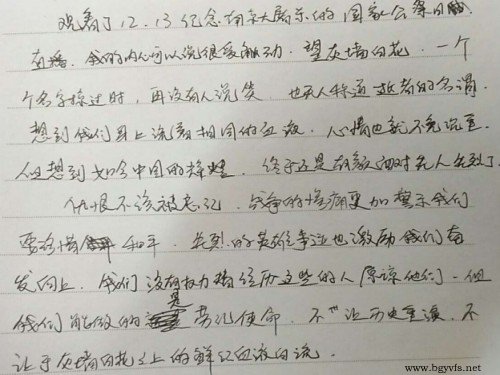 观看了12.13纪念南京大屠杀的国家公祭日
后，我的内心可以说很受触动。望灰墙白花，一个
个名字掠过时，再没有人说笑，也无人称道逝者的名谓
想到我们身上流着相同的血液，心情也就不免沉重
但想到如今中国的辉煌，终于还是有颜面对先人先烈了
仇恨不该被忘记，战争的惨痛更加警示我们
要珍惜和平，先烈的英雄事迹也激励我们奋
发向上，我们没有权力替经历这些的人原谅他们，但
我们能做的是劳记使命，不让历史重演，不
让于灰墙白花之上的鲜红血液白流。
www.bgyvfs.net